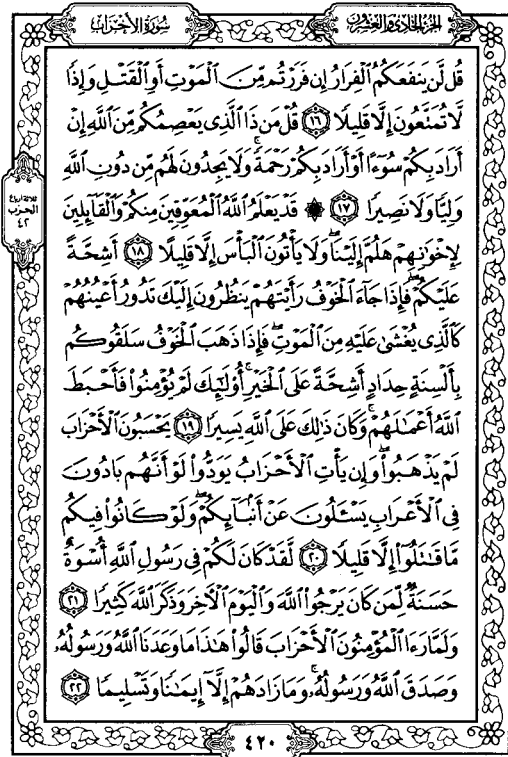 سُورَةُ الأَحْزَابِ
الجُزْءُ الحَادِي وَالعِشْرُونَ
قُل لَّن يَنفَعَكُمُ ٱلْفِرَارُ إِن فَرَرْتُم مِّنَ ٱلْمَوْتِ أَوِ ٱلْقَتْلِ وَإِذًا
لَّا تُمَتَّعُونَ إِلَّا قَلِيلًا ١٦ قُلْ مَن ذَا ٱلَّذِى يَعْصِمُكُم مِّنَ ٱللَّهِ إِنْ
أَرَادَ بِكُمْ سُوٓءًا أَوْ أَرَادَ بِكُمْ رَحْمَةً ۚ وَلَا يَجِدُونَ لَهُم مِّن دُونِ ٱللَّهِ
وَلِيًّا وَلَا نَصِيرًا ١٧ ۞ قَدْ يَعْلَمُ ٱللَّهُ ٱلْمُعَوِّقِينَ مِنكُمْ وَٱلْقَآئِلِينَ
لِإِخْوَٰنِهِمْ هَلُمَّ إِلَيْنَا ۖ وَلَا يَأْتُونَ ٱلْبَأْسَ إِلَّا قَلِيلًا ١٨ أَشِحَّةً
عَلَيْكُمْ ۖ فَإِذَا جَآءَ ٱلْخَوْفُ رَأَيْتَهُمْ يَنظُرُونَ إِلَيْكَ تَدُورُ أَعْيُنُهُمْ
كَٱلَّذِى يُغْشَىٰ عَلَيْهِ مِنَ ٱلْمَوْتِ ۖ فَإِذَا ذَهَبَ ٱلْخَوْفُ سَلَقُوكُم
بِأَلْسِنَةٍ حِدَادٍ أَشِحَّةً عَلَى ٱلْخَيْرِ ۚ أُو۟لَٰٓئِكَ لَمْ يُؤْمِنُوا۟ فَأَحْبَطَ
ٱللَّهُ أَعْمَٰلَهُمْ ۚ وَكَانَ ذَٰلِكَ عَلَى ٱللَّهِ يَسِيرًا ١٩ يَحْسَبُونَ ٱلْأَحْزَابَ
لَمْ يَذْهَبُوا۟ ۖ وَإِن يَأْتِ ٱلْأَحْزَابُ يَوَدُّوا۟ لَوْ أَنَّهُم بَادُونَ
فِى ٱلْأَعْرَابِ يَسْـَٔلُونَ عَنْ أَنۢبَآئِكُمْ ۖ وَلَوْ كَانُوا۟ فِيكُم
مَّا قَٰتَلُوٓا۟ إِلَّا قَلِيلًا ٢٠ لَّقَدْ كَانَ لَكُمْ فِى رَسُولِ ٱللَّهِ أُسْوَةٌ
حَسَنَةٌ لِّمَن كَانَ يَرْجُوا۟ ٱللَّهَ وَٱلْيَوْمَ ٱلْءَاخِرَ وَذَكَرَ ٱللَّهَ كَثِيرًا ٢١
وَلَمَّا رَءَا ٱلْمُؤْمِنُونَ ٱلْأَحْزَابَ قَالُوا۟ هَٰذَا مَا وَعَدَنَا ٱللَّهُ وَرَسُولُهُۥ
وَصَدَقَ ٱللَّهُ وَرَسُولُهُۥ ۚ وَمَا زَادَهُمْ إِلَّآ إِيمَٰنًا وَتَسْلِيمًا ٢٢
ثلاثة أرباع
الحزب
٤٢
٤٢٠